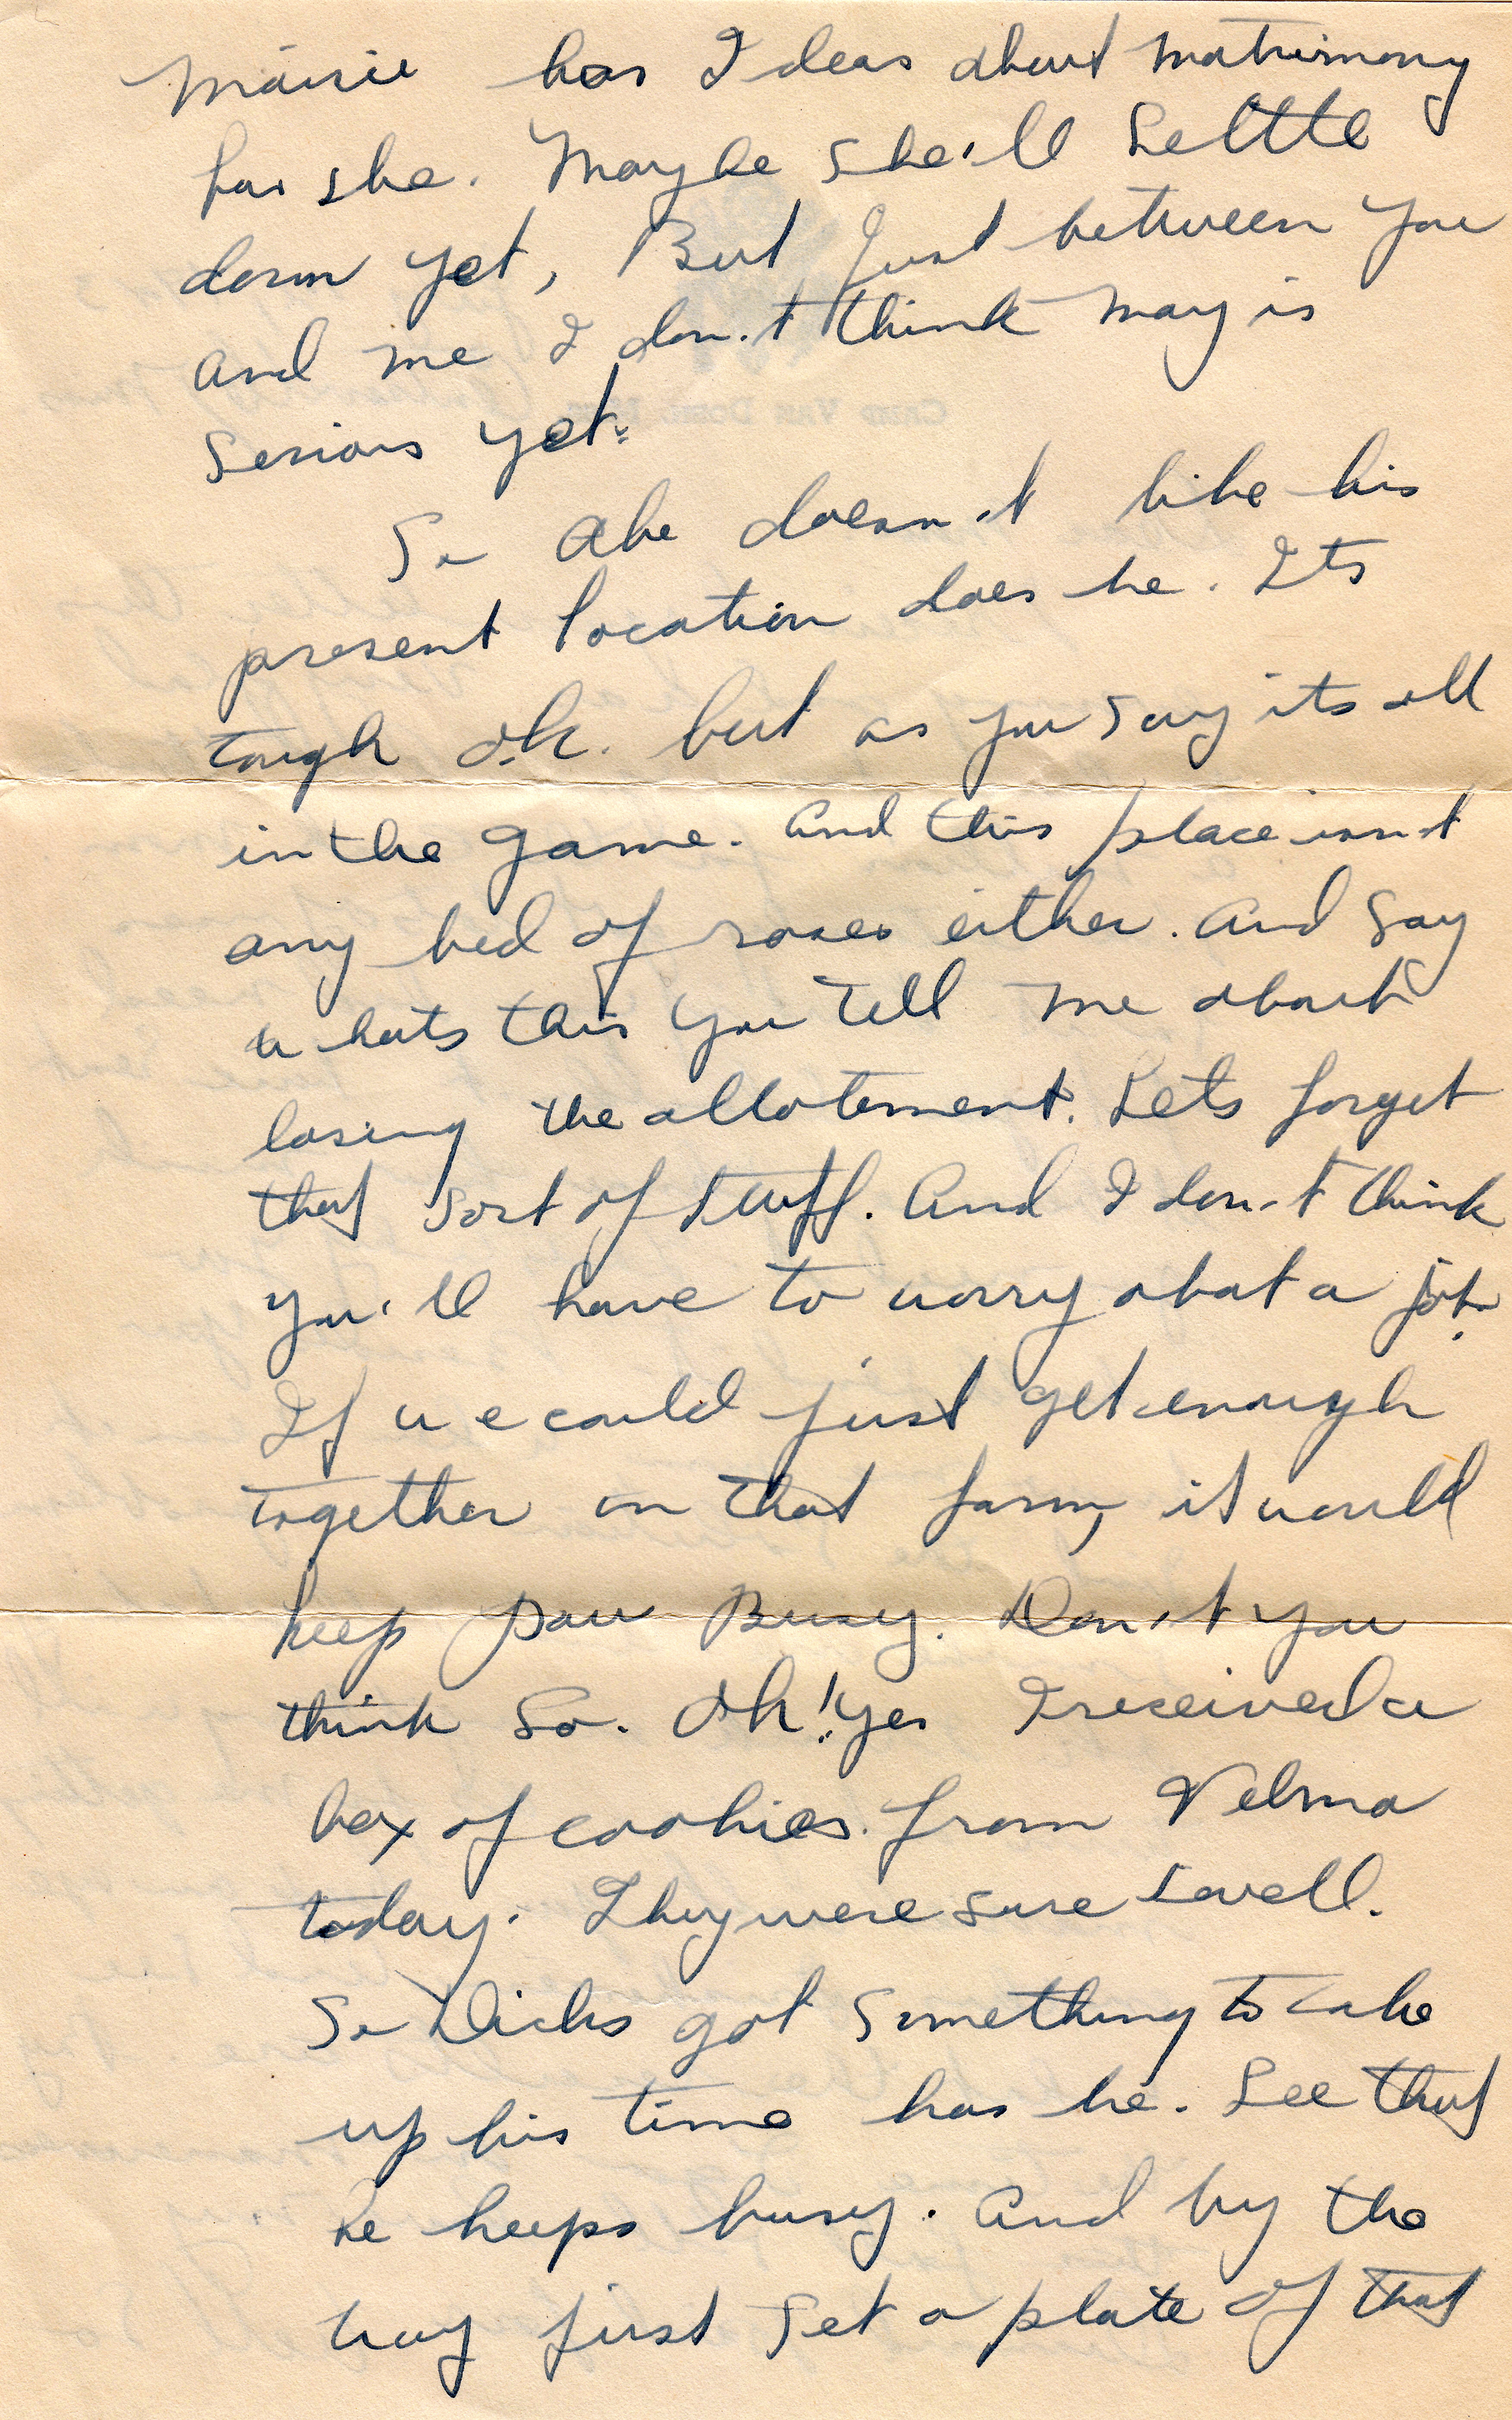 Maisie has Ideas about matrimony
has she. Maybe she'll Settle
down yet, But Just between you
and me I don't think may is
Serious yet.
So Abe doesn't like his
present location does he. Its
tough oh. but as you say its all
in the game. And this place isn't
any bed of roses either. And Say
whats this you tell me about
losing the allotement. Lets forget
that sort of stuff. And I don't think
you'll have to worry about a job.
If we could just get enough
together on that farm, it would
keep you Busy. Don't you
think So. Oh! yes I received a
box of cookies from Velma
today. They were sure swell.
So Dicks got something to take
up his time has he. See that
he keeps busy. And by the
way just set a plate of that